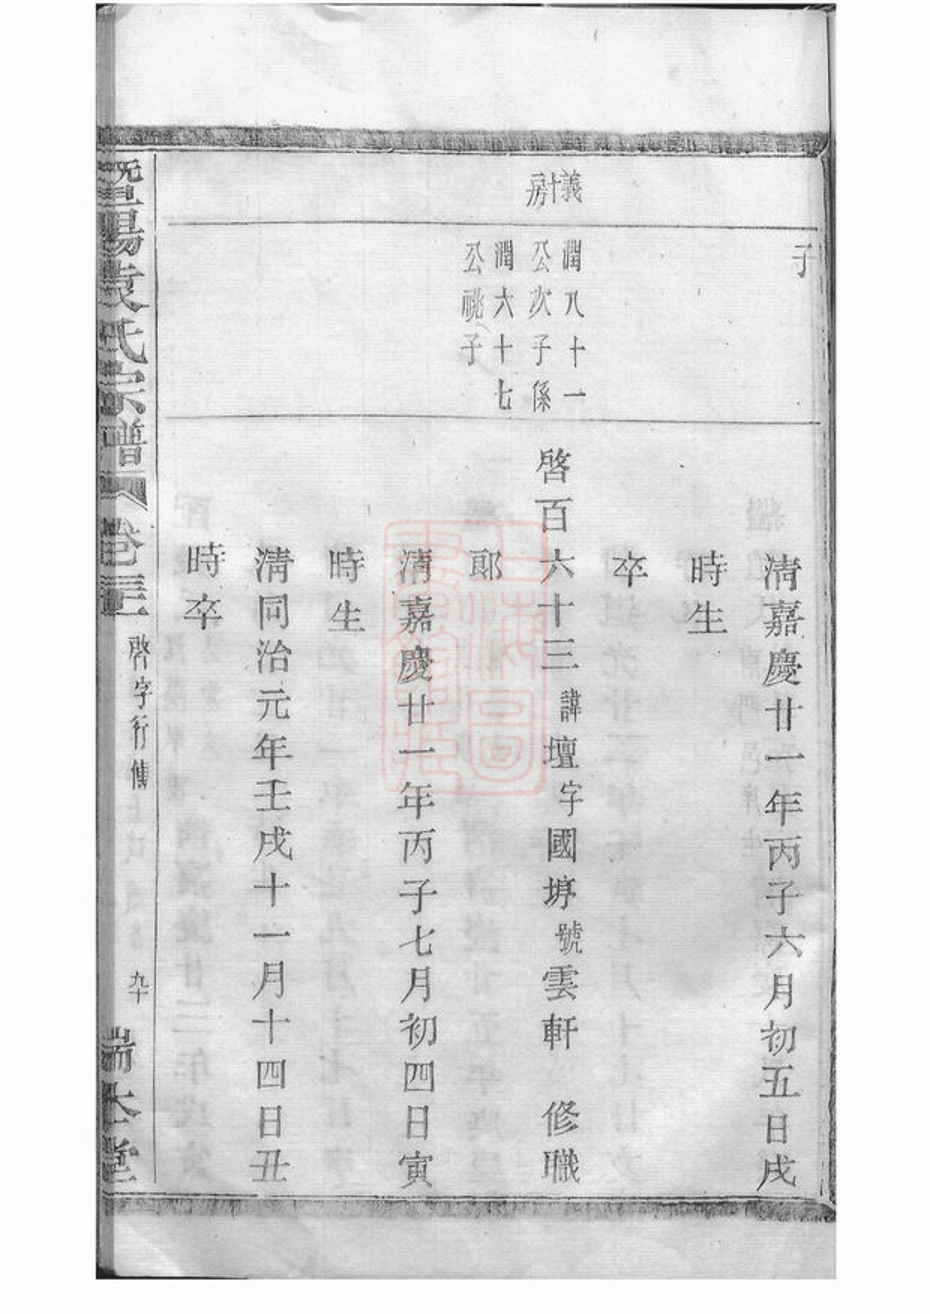 子
清嘉慶廿一年丙子六月初五日戌
時生
卒
義十一
房
潤八十一
公次子係
潤六十七
公祧子
啓百六十三諱壇字國垿號雲軒 修職
郎
清嘉慶廿一年丙子七月初四日寅
時生
清同治元年壬戌十一月十四日丑
時卒
暨陽袁氏宗譜
卷三
啓字行傳
九十
端本堂